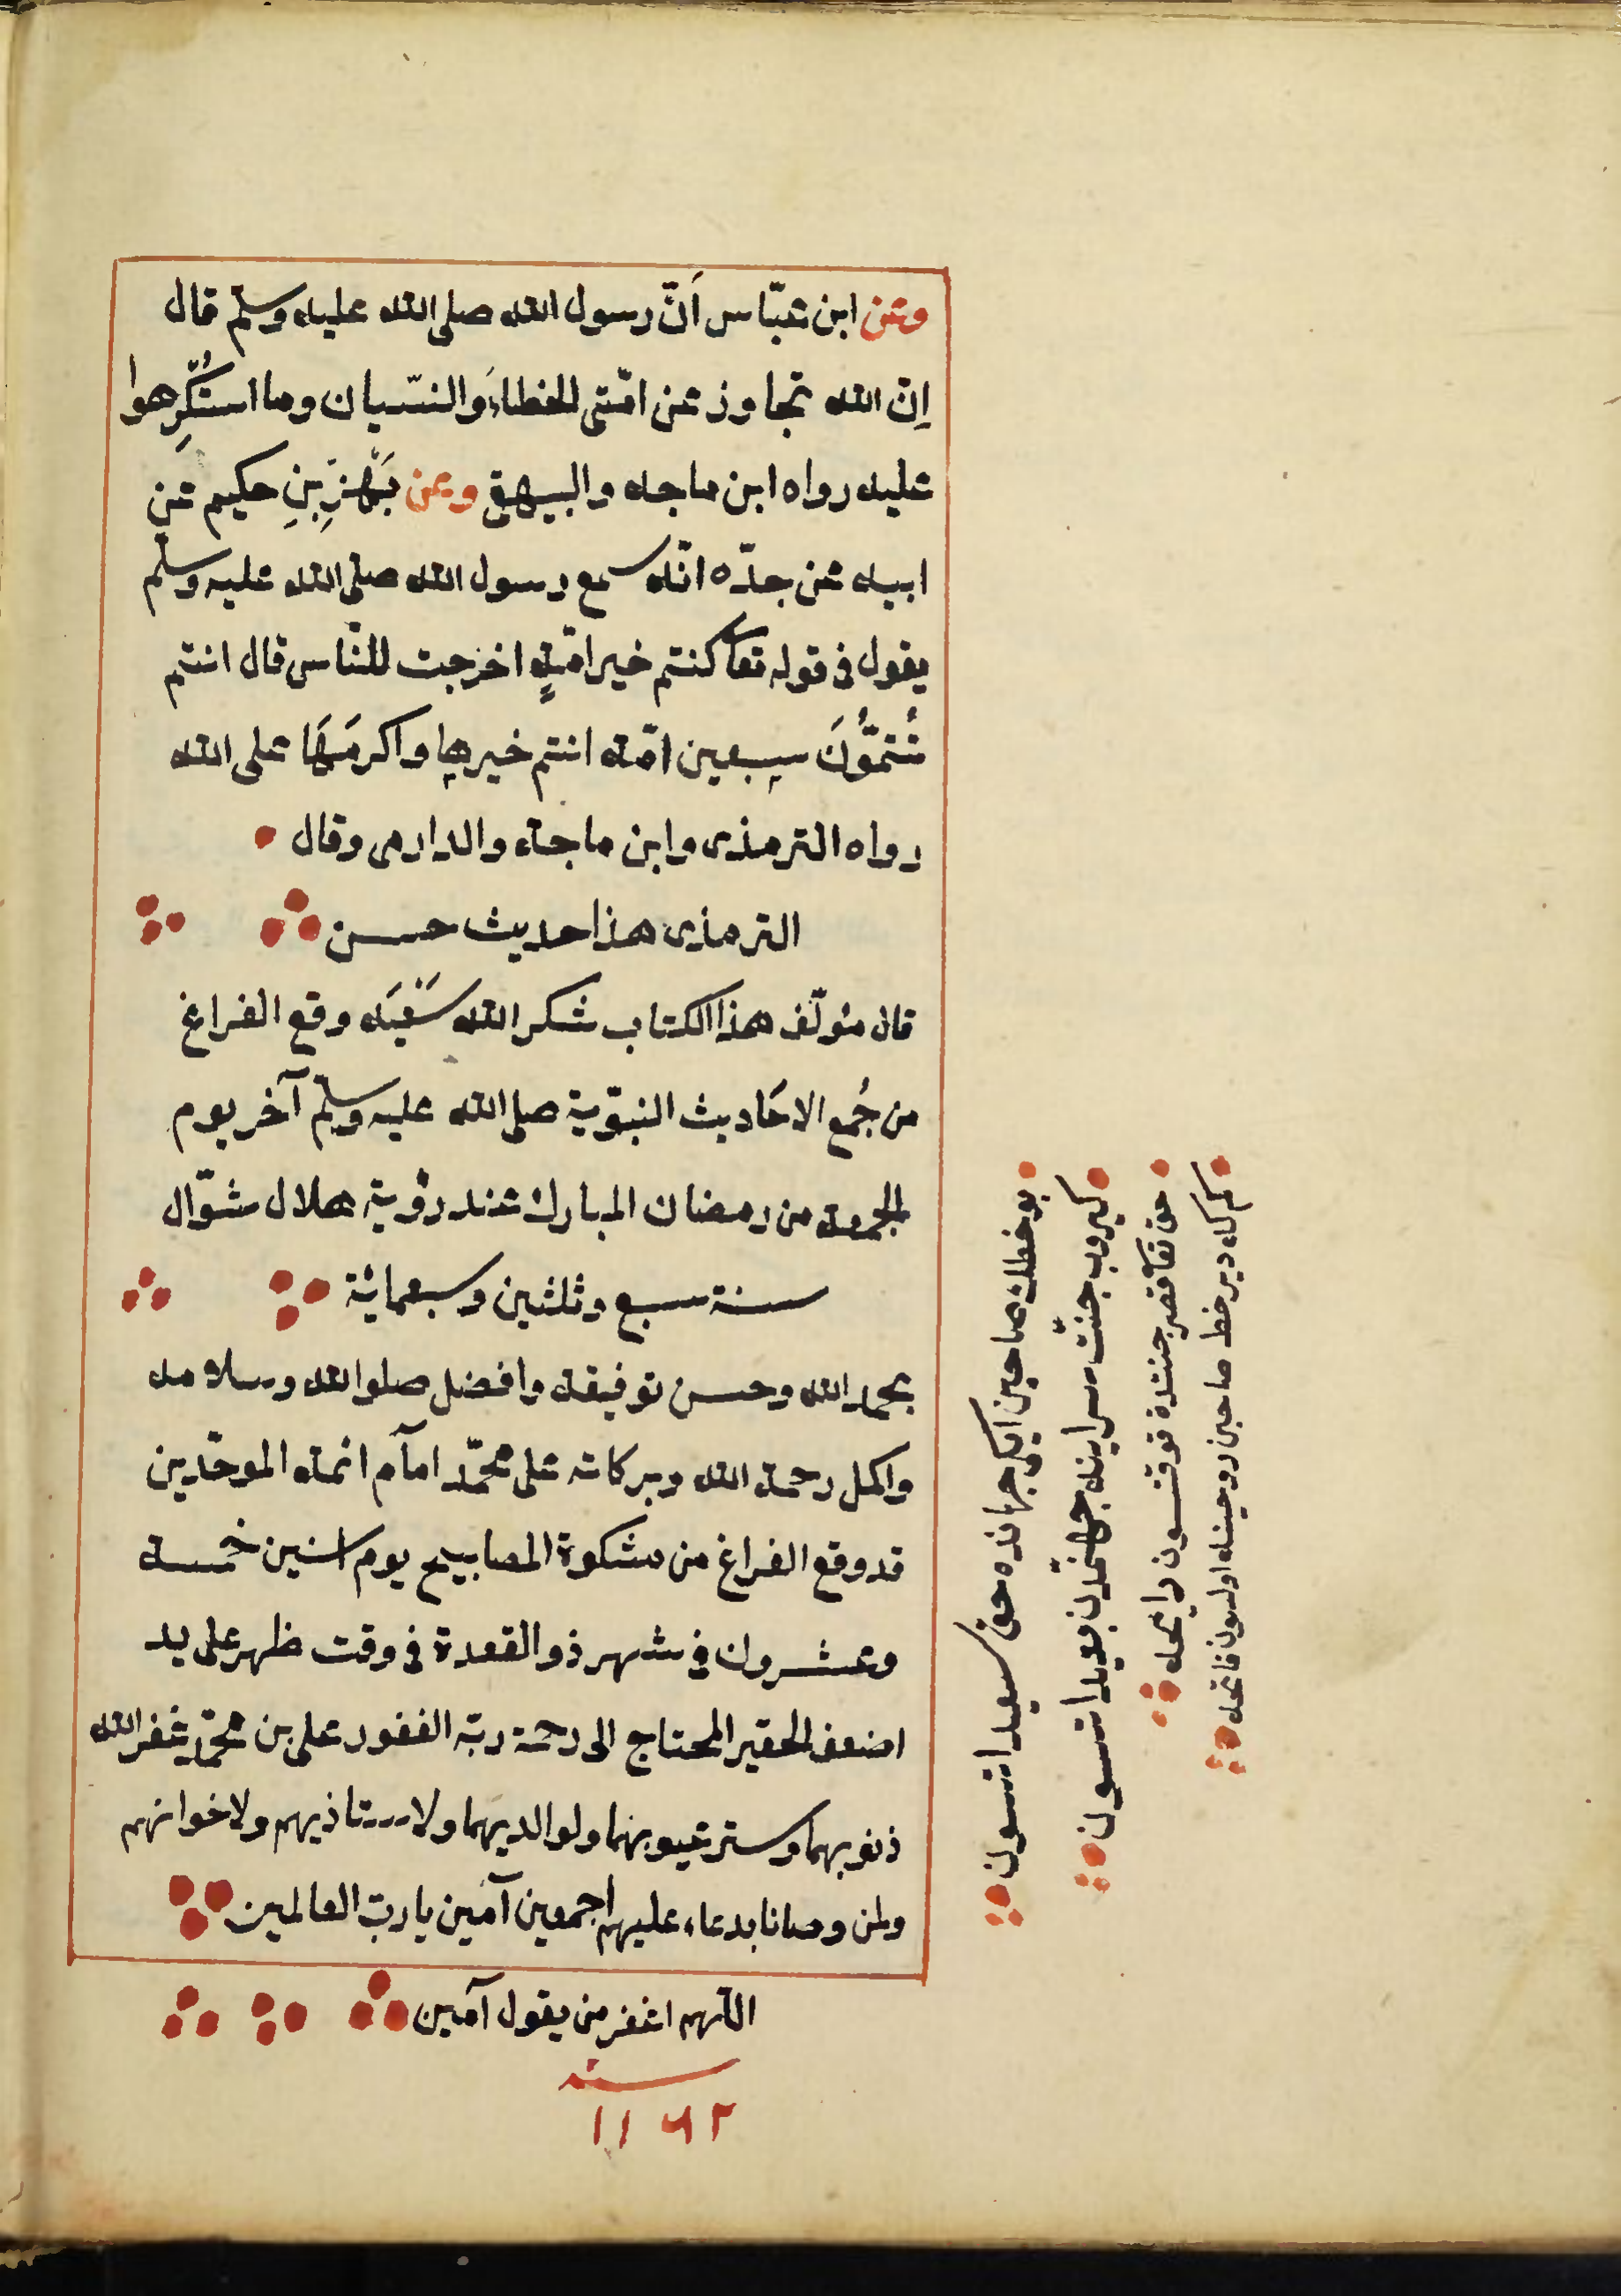 وعن ابن عبّاس اَنّ رسول الله صلى الله عليه وسلّم قال
اِنّ الله تجاوز عن امّتى الخطاء والنسّيان وما استُكْرِهوا
عليه رواه ابن ماجه والبيهقى وعن بَهْزِ بْنِ حكيم عن
ابيه عن جدّه انّه سمع رسول الله صلّى الله عليه وسلّم
يقول فى قوله تعا كنتم خير امّةٍ اخرجت للنّاس قال انتم
تُتمُّونَ سبعين امّة انتم خيرها واكرمَهَا على الله
رواه الترمذى وابن ماجة والدارمى وقال
الترمذى هذا حديث حسن
قال مئولّف هذا الكتاب شكر الله سَعْيَه وقع الفراغ
من جُمع الاحَاديث النبوّية صلى الله عليه وسلّم آخر يوم
الجمعة من رمضان المبارك عند رؤية هلال شوّال
سنة سبع وثلثين وسبعمائة
بحمد الله وحسن توفيقه وافضل صلوا الله وسلامه
واكمل رحمة الله وبركاته على محمّد امآم ائمة الموحّدين
قد وقع الفراغ من مشكوة المصابيح يوم اسنين خمسة
وعشرون فى شهر ذو القعدة فى وقت ظهر على يد
اضعف الحقير المحتاج الى رحمة ربّه الغفور على بن محمّد غفر الله
ذنوبهما وستر عيوبهما ولوالديهما ولاستاذيهم ولاخوانهم
ولمن وصانا بدعاء عليهم اجمعين آمين يا ربّ العالمين
اللّهم اغفر من يقول آمين
سنه
١١٦٢
بو خطك صاحبين ايكى جهانده حق سعيد اتسون
كيروب جنّت سراينه جهنّمدن بعيد اتسون
حق تعا قصر جنتده قوقتسون رايحه
كم كه دير خط صاحبى روحينه اولسون فاتحه